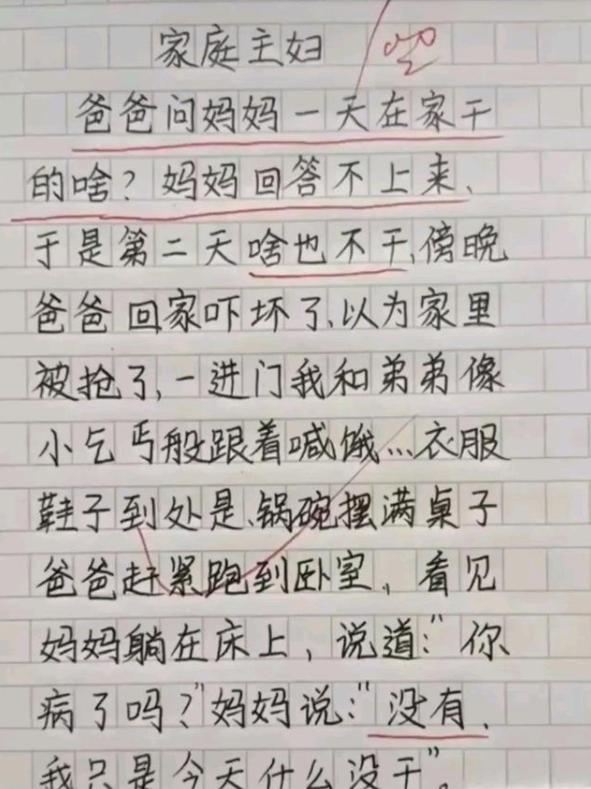 家庭主妇
爸爸问妈妈一天在家干
的啥？妈妈回答不上来、
于是第二天啥也不干、傍晚
爸爸回家吓坏了、以为家里
被抢了,一进门我和弟弟像
小乞丐般跟着喊饿…衣服
鞋子到处是、锅碗摆满桌子
爸爸赶紧跑到卧室，看见
妈妈躺在床上，说道:"你
病了吗？"妈妈说:"没有、
我只是今天什么没干"。